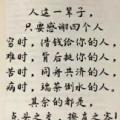 人这一辈子，
只要感谢四个人
穷时，借钱给你的人，
难时，背后挺你的人，
苦时，同舟共济的人，
病时，端茶倒水的人，
其余的都是，
点头之交，擦肩之客！